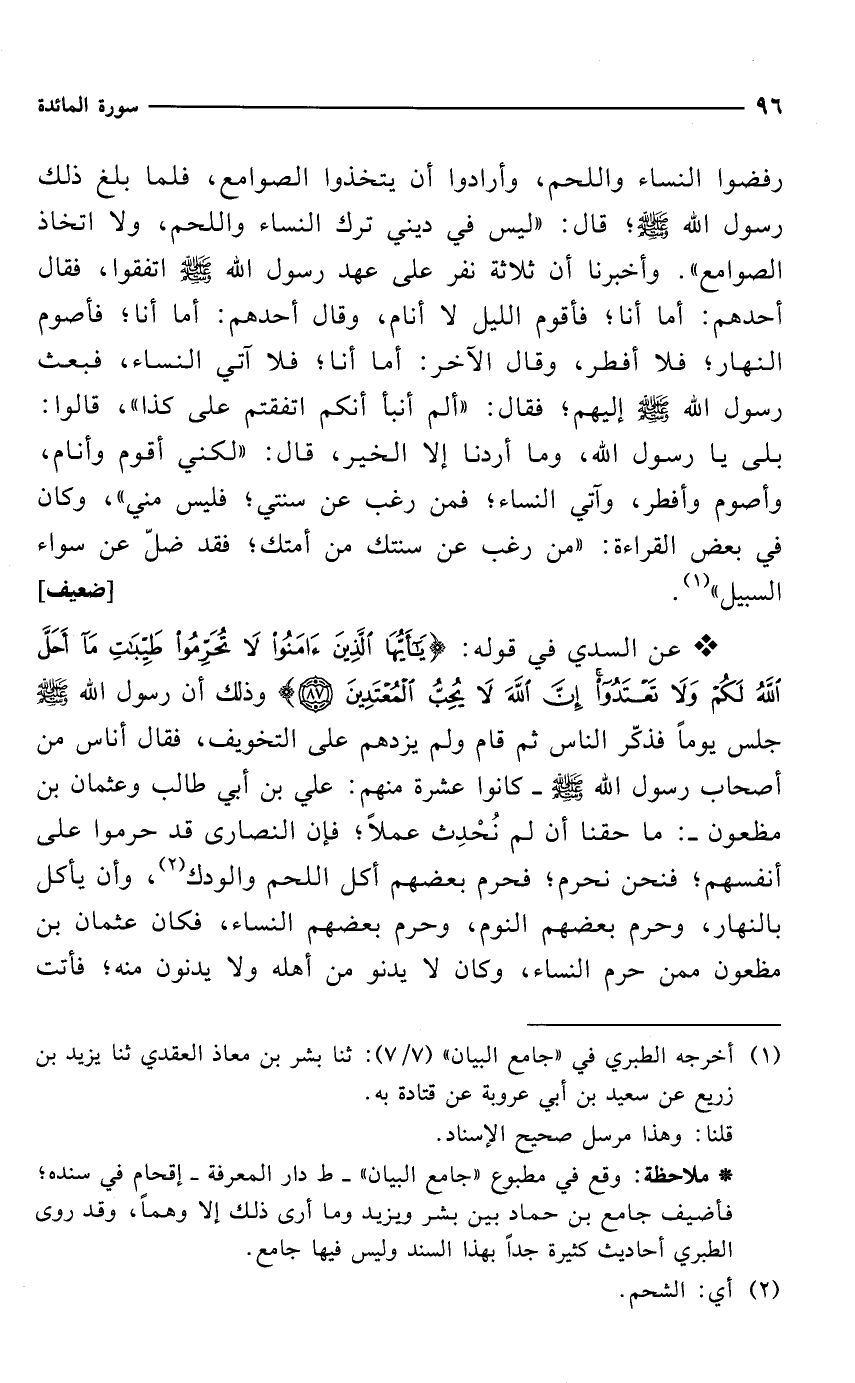 ٩٦ سورة المائدة
رفضوا النساء واللحم، وأرادوا أن يتخذوا الصوامع، فلما بلغ ذلك
رسول الله ﷺ؛ قال: «ليس في ديني ترك النساء واللحم، ولا اتخاذ
الصوامع». وأخبرنا أن ثلاثة نفر على عهد رسول الله ﷺ اتفقوا، فقال
أحدهم: أما أنا؛ فأقوم الليل لا أنام، وقال أحدهم: أما أنا؛ فأصوم
النهار؛ فلا أفطر، وقال الآخر: أما أنا؛ فلا آتي النساء، فبعث
رسول الله ﷺ إليهم؛ فقال: «ألم أنبأ أنكم اتفقتم على كذا»، قالوا:
بلى يا رسول الله، وما أردنا إلا الخير، قال: «لكني أقوم وأنام،
وأصوم وأفطر، وآتي النساء؛ فمن رغب عن سنتي؛ فليس مني»، وكان
في بعض القراءة: «من رغب عن سنتك من أمتك؛ فقد ضلّ عن سواء
السبيل»(١). [ضعيف]
❖ عن السدي في قوله: ﴿يَٰٓأَيُّهَا ٱلَّذِينَ ءَامَنُوا۟ لَا تُحَرِّمُوا۟ طَيِّبَٰتِ مَآ أَحَلَّ
ٱللَّهُ لَكُمْ وَلَا تَعْتَدُوٓا۟ۚ إِنَّ ٱللَّهَ لَا يُحِبُّ ٱلْمُعْتَدِينَ ٨٧﴾ وذلك أن رسول الله ﷺ
جلس يوماً فذكّر الناس ثم قام ولم يزدهم على التخويف، فقال أناس من
أصحاب رسول الله ﷺ ـ كانوا عشرة منهم: علي بن أبي طالب وعثمان بن
مظعون ـ: ما حقنا أن لم نُحْدِث عملاً؛ فإن النصارى قد حرموا على
أنفسهم؛ فنحن نحرم؛ فحرم بعضهم أكل اللحم والودك(٢)، وأن يأكل
بالنهار، وحرم بعضهم النوم، وحرم بعضهم النساء، فكان عثمان بن
مظعون ممن حرم النساء، وكان لا يدنو من أهله ولا يدنون منه؛ فأتت
(١) أخرجه الطبري في «جامع البيان» (٧/٧): ثنا بشر بن معاذ العقدي ثنا يزيد بن
زريع عن سعيد بن أبي عروبة عن قتادة به.
قلنا: وهذا مرسل صحيح الإسناد.
* ملاحظة: وقع في مطبوع «جامع البيان» ـ ط دار المعرفة ـ إقحام في سنده؛
فأضيف جامع بن حماد بين بشر ويزيد وما أرى ذلك إلا وهماً، وقد روى
الطبري أحاديث كثيرة جداً بهذا السند وليس فيها جامع.
(٢) أي: الشحم.